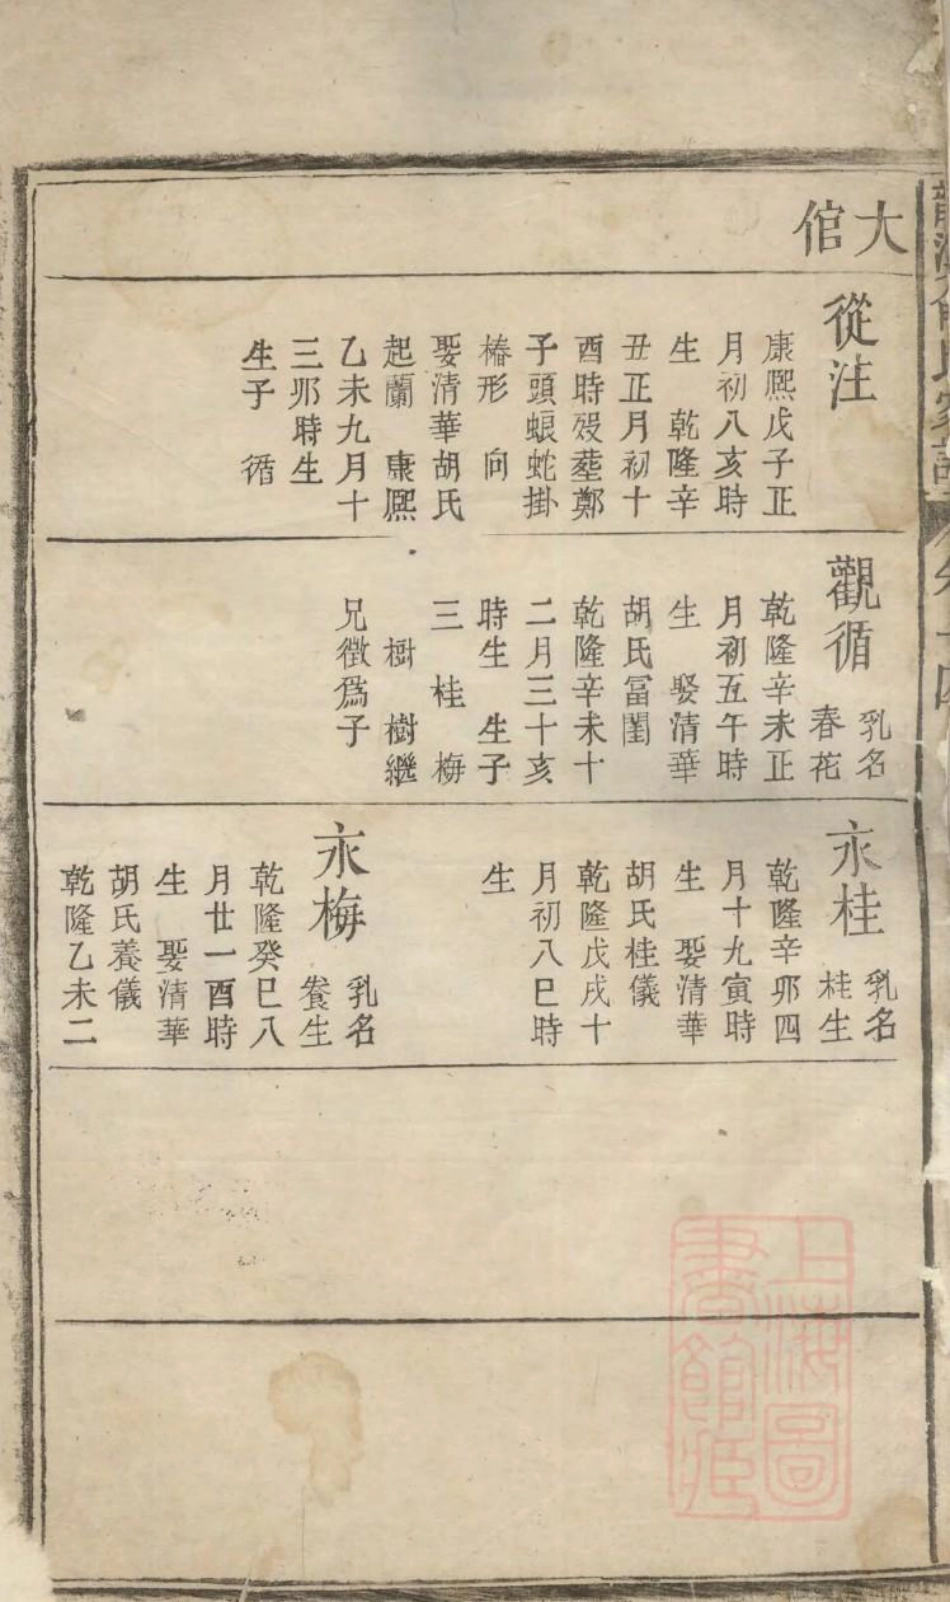 大
倌
從注
康熈戊子正
月初八亥時
生　乾隆辛
丑正月初十
酉時殁塟鄭
子頭蛝蛇掛
椿形　向
娶清華胡氏
起蘭　康熈
乙未九月十
三夘時生
生子　循
觀循
乳名
春花
乾隆辛未正
月初五午時
生　娶清華
胡氏冨閨
乾隆辛未十
二月三十亥
時生　生子
三　桂　梅
樹　樹繼
兄徵爲子
永桂
乳名
桂生
乾隆辛夘四
月十九寅時
生　娶清華
胡氏桂儀
乾隆戊戌十
月初八巳時
生
永梅
乳名
養生
乾隆癸巳八
月廿一酉時
生　娶清華
胡氏養儀
乾隆乙未二
上海圖
書館藏